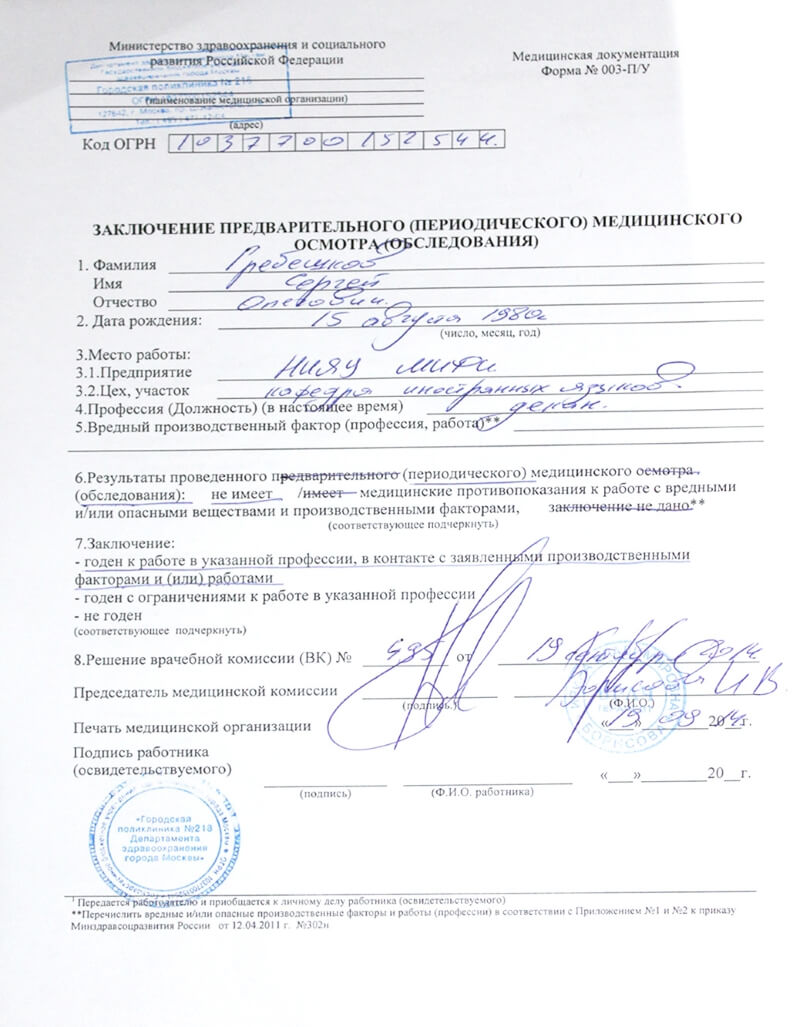 Министерство здравоохранения и социального
развития Российской Федерации
Медицинская документация
Форма № 003-П/У
Городская поликлиника № 218
(наименование медицинской организации)
(адрес)
Код ОГРН 1037700152544.
ЗАКЛЮЧЕНИЕ ПРЕДВАРИТЕЛЬНОГО (ПЕРИОДИЧЕСКОГО) МЕДИЦИНСКОГО
ОСМОТРА (ОБСЛЕДОВАНИЯ)
1. Фамилия Гребешков
Имя Сергей
Отчество Олегович.
2. Дата рождения: 15 августа 1980г
(число, месяц, год)
3.Место работы:
3.1.Предприятие НИЯУ МИФИ.
3.2.Цех, участок кафедра иностранных языков.
4.Профессия (Должность) (в настоящее время) декан.
5.Вредный производственный фактор (профессия, работа)**
6.Результаты проведенного предварительного (периодического) медицинского осмотра
(обследования): не имеет /имеет медицинские противопоказания к работе с вредными
и/или опасными веществами и производственными факторами, заключение не дано**
(соответствующее подчеркнуть)
7.Заключение:
- годен к работе в указанной профессии, в контакте с заявленными производственными
факторами и (или) работами
- годен с ограничениями к работе в указанной профессии
- не годен
(соответствующее подчеркнуть)
8.Решение врачебной комиссии (ВК) № 495 от 19 2014.
Председатель медицинской комиссии Борисова И В
(подпись.) (Ф.И.О.)
Печать медицинской организации «19» 09 2014г.
БОРИСОВА
Подпись работника
(освидетельствуемого) «___»________20__г.
(подпись) (Ф.И.О. работника)
«Городская
поликлиника №218
Департамента
здравоохранения
города Москвы»
¹ Передается работодателю и приобщается к личному делу работника (освидетельствуемого)
**Перечислить вредные и/или опасные производственные факторы и работы (профессии) в соответствии с Приложением №1 и №2 к приказу
Минздравсоцразвития России от 12.04.2011 г. №302н